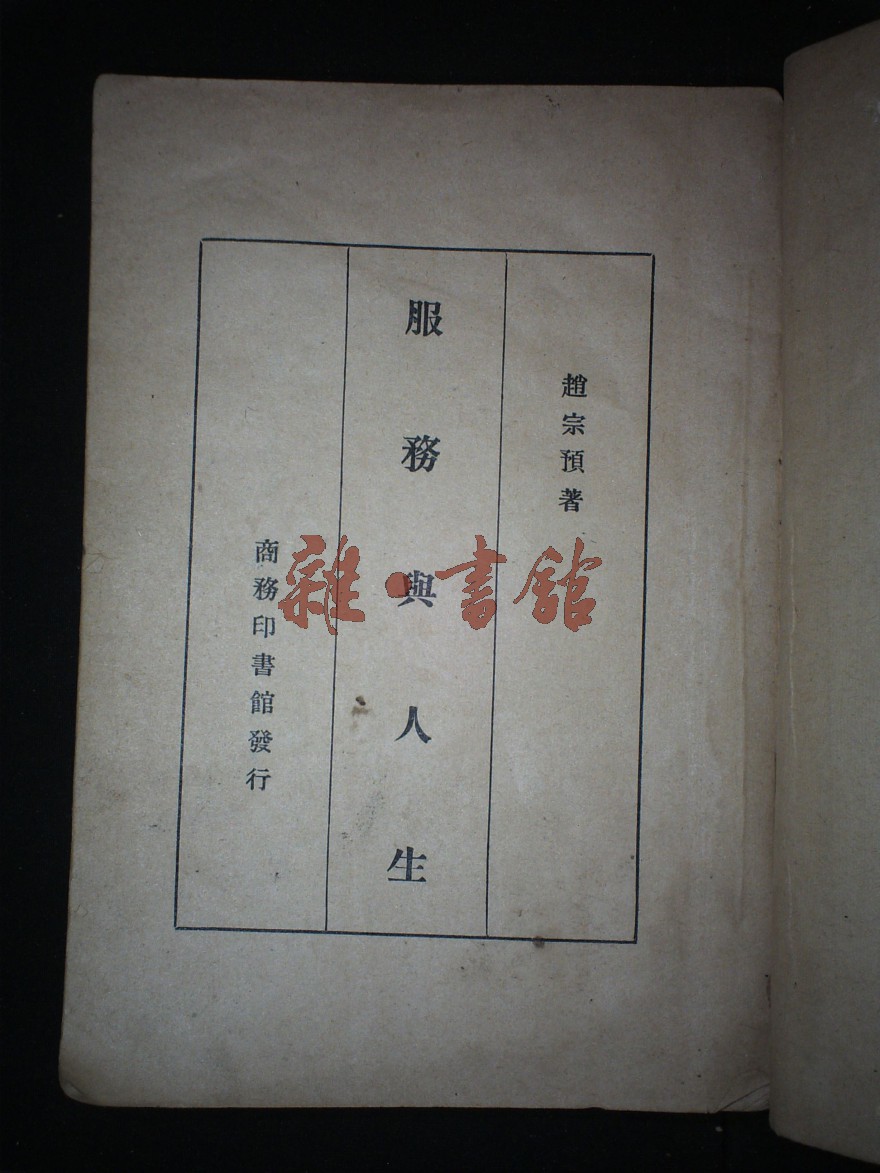 趙宗預著
服務與人生
商務印書館發行
雜·書館